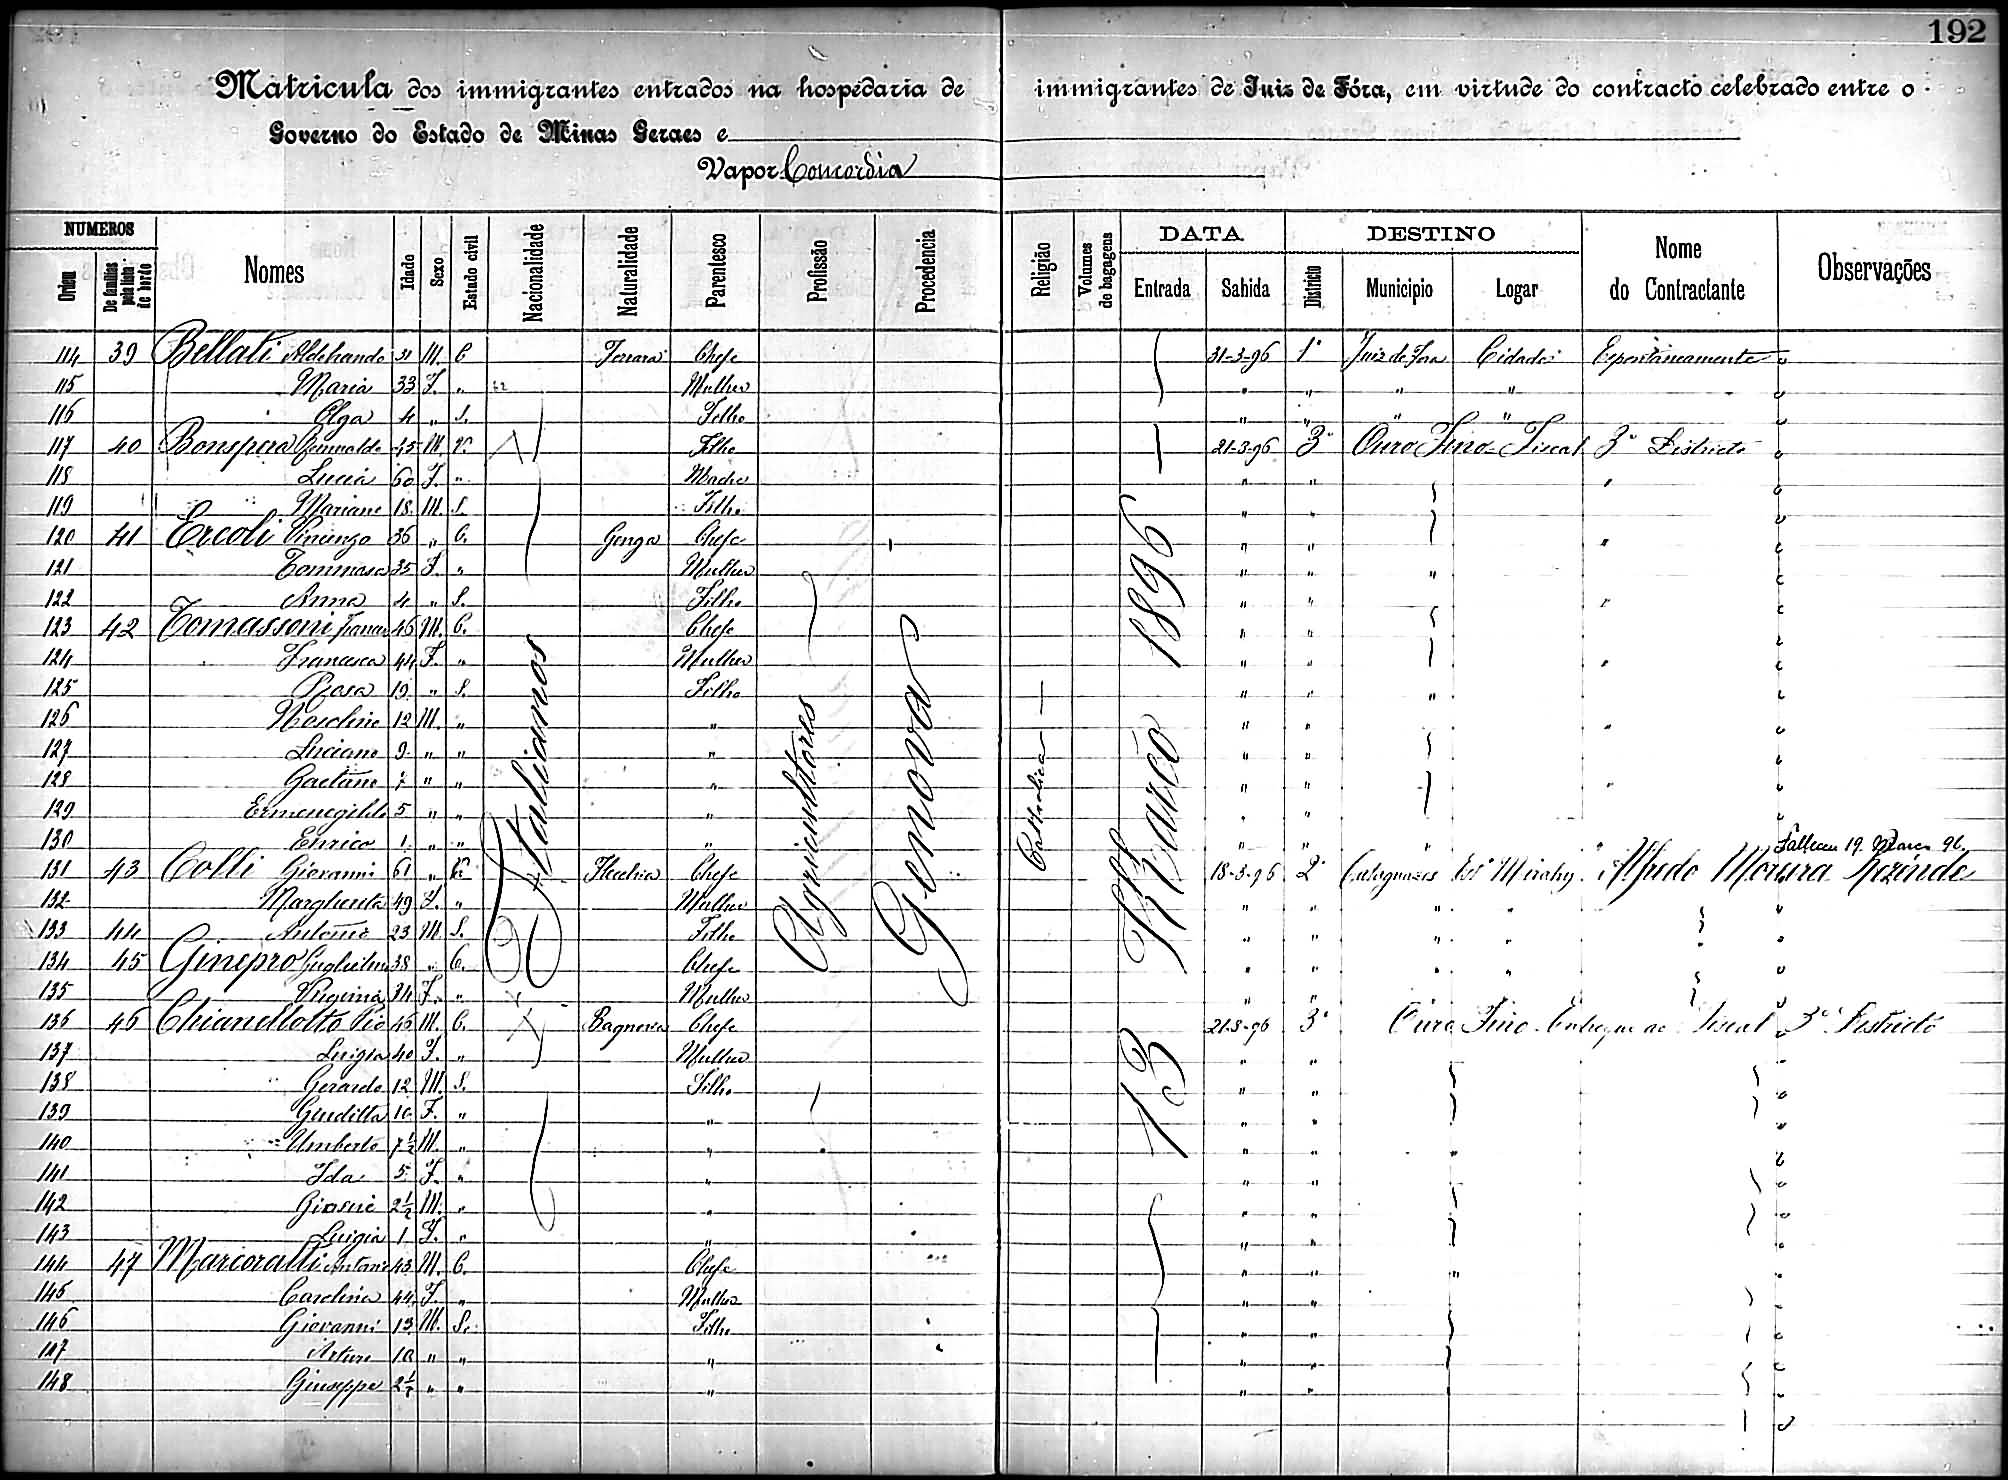 192
Matricula dos immigrantes entrados na hospedaria de immigrantes de Juiz de Fóra, em virtude do contracto celebrado entre o
Governo do Estado de Minas Geraes e
Vapor Concordia
NUMEROS DATA DESTINO
Ordem De familias pela lista de bordo Nomes Idade Sexo Estado civil Nacionalidade Naturalidade Parentesco Profissão Procedencia Religião Volumes de bagagens Entrada Sahida Districto Municipio Logar Nome do Contractante Observações
Italianos Agricultores Genova Catholica 13 Março 1896
114 39 Bellati Aldebrando 31 M. C Ferrara Chefe 31-3-96 1º Juiz de Fora Cidade Espontaneamente
115 Maria 33 F. " Mulher " " " "
116 Olga 4 " S. Filho " " " "
117 40 Bonspera 45 M. V. Filho 21-3-96 3º Ouro Fino Fiscal 3º Districto
118 Lucia 60 F. " Madre " " "
119 Mariano 18 M. S. Filho " "
120 41 Ercoli Vincenzo 36 " C. Genga Chefe " " "
121 Tommasa 35 F. " Mulher " " "
122 Anna 4 " S. Filho " " "
123 42 Tomassoni 46 M. C. Chefe " "
124 Francesca 44 F. " Mulher " " "
125 Rosa 19 " S. Filho " " "
126 12 M. " " " " "
127 Luciano 9 " " " " "
128 Gaetano 7 " " " " " "
129 Ermenegildo 5 " " " " "
130 Enrico 1 " " " " " " " 19 Março 96.
131 43 Colli Giovanni 61 " C. Chefe 18-3-96 2º Cataguazes Est. Mirahy Alfredo Moura Rezende
132 Margherita 49 F. " Mulher " " " "
133 44 Antonio 23 M S. Filho " " " "
134 45 Ginepro Guglielmo 38 " C. Chefe " " " "
135 Virginia 34 F. " Mulher " "
136 46 Chianellotto Pio 46 M. C. Chefe 21-3-96 3º Ouro Fino Entregue ao Fiscal 3º Districto
137 Luigia 40 F. " Mulher " " "
138 Gerardo 12 M. S. Filho " "
139 Giuditta 10 F. " " " "
140 Umberto 7½ M. " " " " "
141 Ida 5 F. " " " "
142 Giosuè 2½ M. " " " "
143 Luigia 1 F. " " " "
144 47 Marcoralli Antonio 43 M. C. Chefe " " "
145 Carolina 44 F. " Mulher " "
146 Giovanni 13 M. S. Filho " "
147 Arturo 10 " " " " "
148 Giuseppe 2½ " " " " "